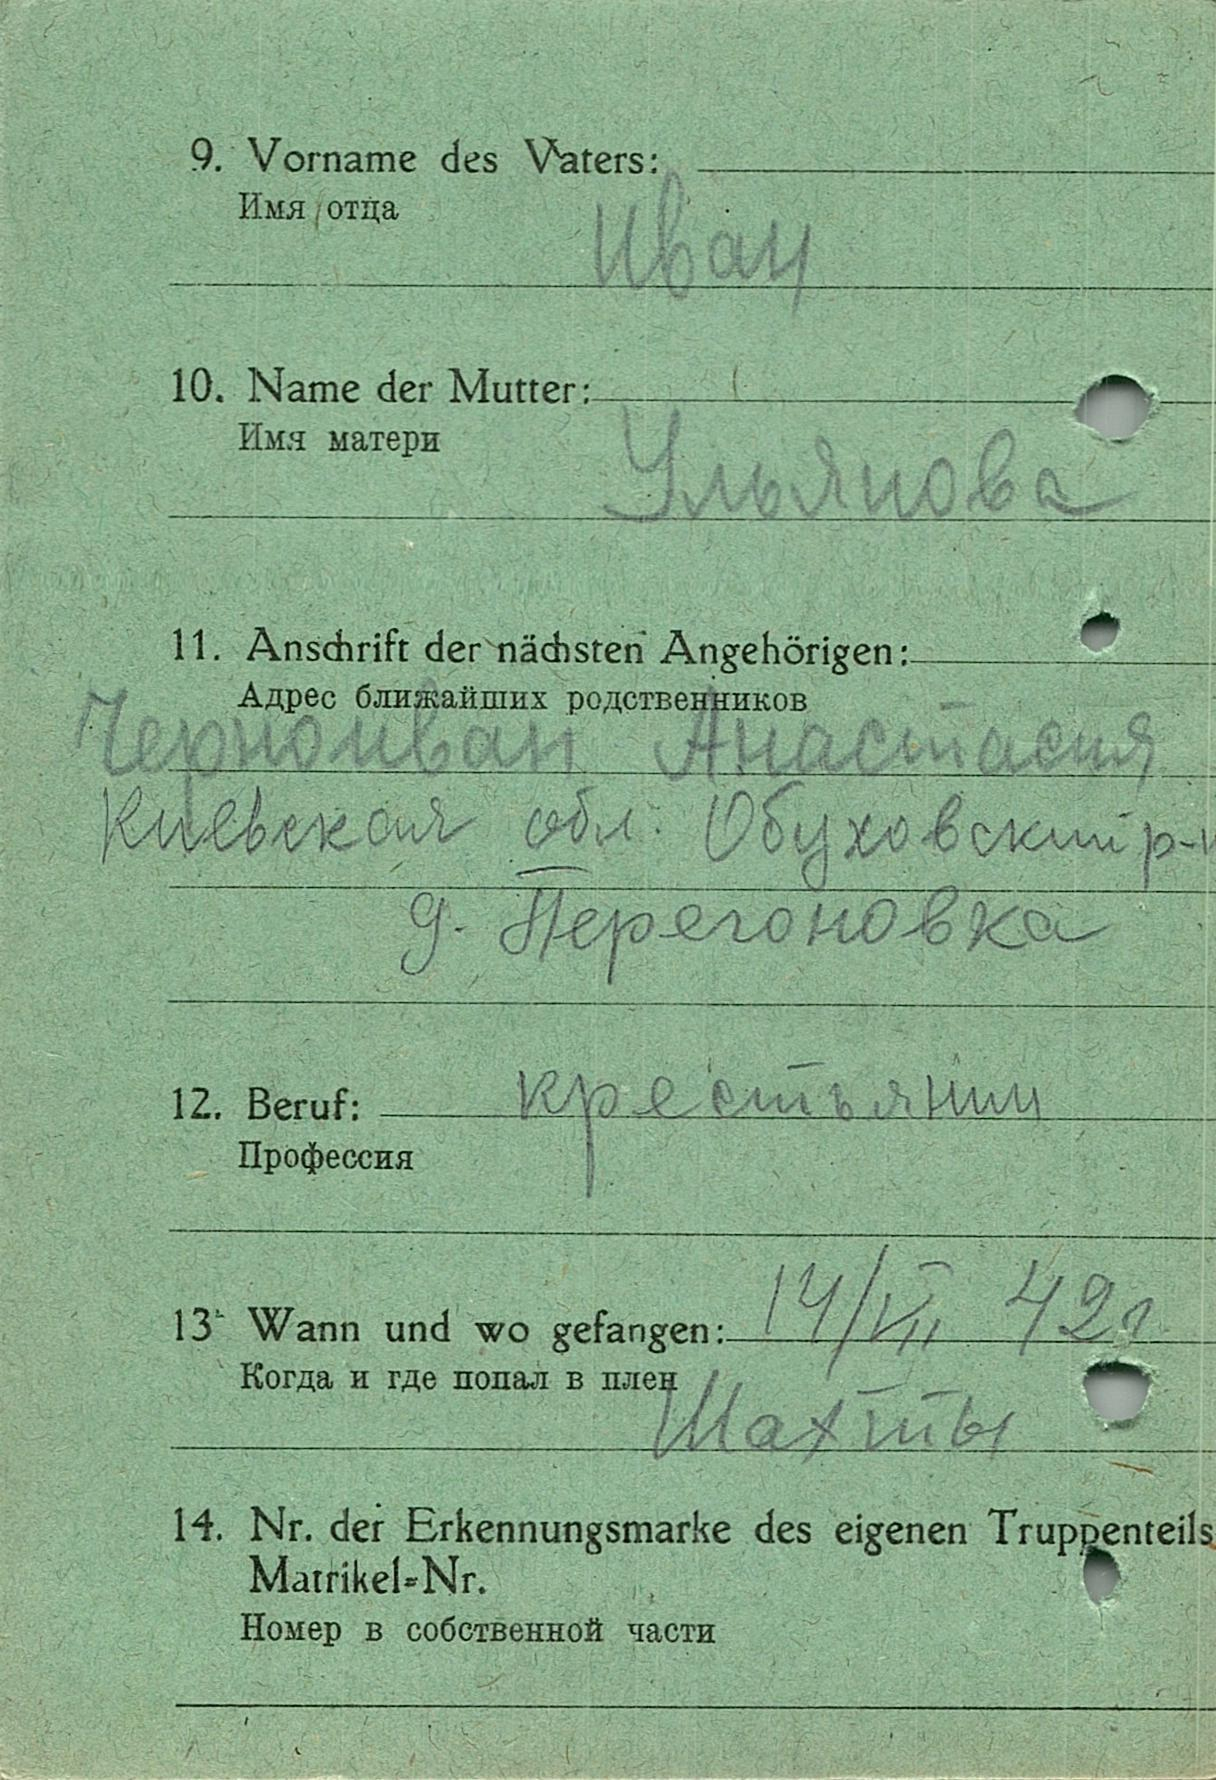 9. Vorname des Vaters:
Имя отца
Иван
10. Name der Mutter:
Имя матери
Ульянова
11. Anschrift der nächsten Angehörigen:
Адрес ближайших родственников
Черноиван Анастасия
Киевская обл. Обуховский р-н
д. Перегоновка
12. Beruf: крестьянин
Профессия
13. Wann und wo gefangen: 14/VII 42г
Когда и где попал в плен
Шахты
14. Nr. der Erkennungsmarke des eigenen Truppenteils
Matrikel-Nr.
Номер в собственной части